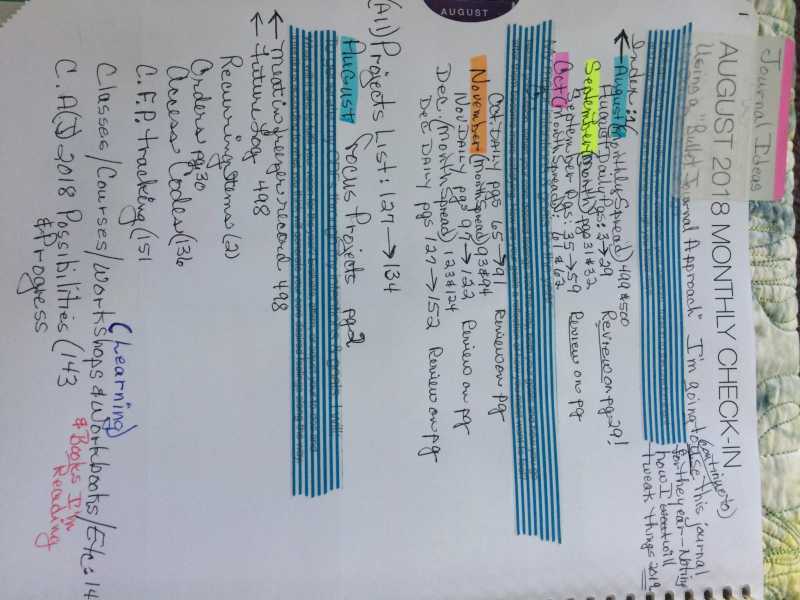 AUGUST
Journal Ideas
AUGUST 2018 MONTHLY CHECK-IN
Using a "Bullet Journal Approach" I'm going to (continue to) use this journal
for the year - Noting
how I will
tweak things 2019
Index:
← August (Monthly Spread) 499 & 500
August Daily Pgs: 3→29 Review on pg 29!
September (Month) pgs 31 & 32
September Pgs: 35→59 Review on pg
Oct (Month Spreads: 61 & 62
Oct DAILY pgs 65→91 Review on pg
November (Month Spread) 93 & 94
Nov DAILY pgs 97→122 Review on pg
Dec. (Month Spread) 123 & 124
Dec DAILY pgs 127→152 Review on pg
(All) Projects List: 127→134
August Focus Projects pg 2
← Meat in freezer record 498
← Future Log 498
Recurring Items (2)
Orders pg 30
Access Codes (136
C.F.P. tracking (151
(Learning)
Classes/Courses/Workshops & Workbooks/Etc: 14
& Books I'm
Reading
C.A(J) 2018 Possibilities (143
& Progress